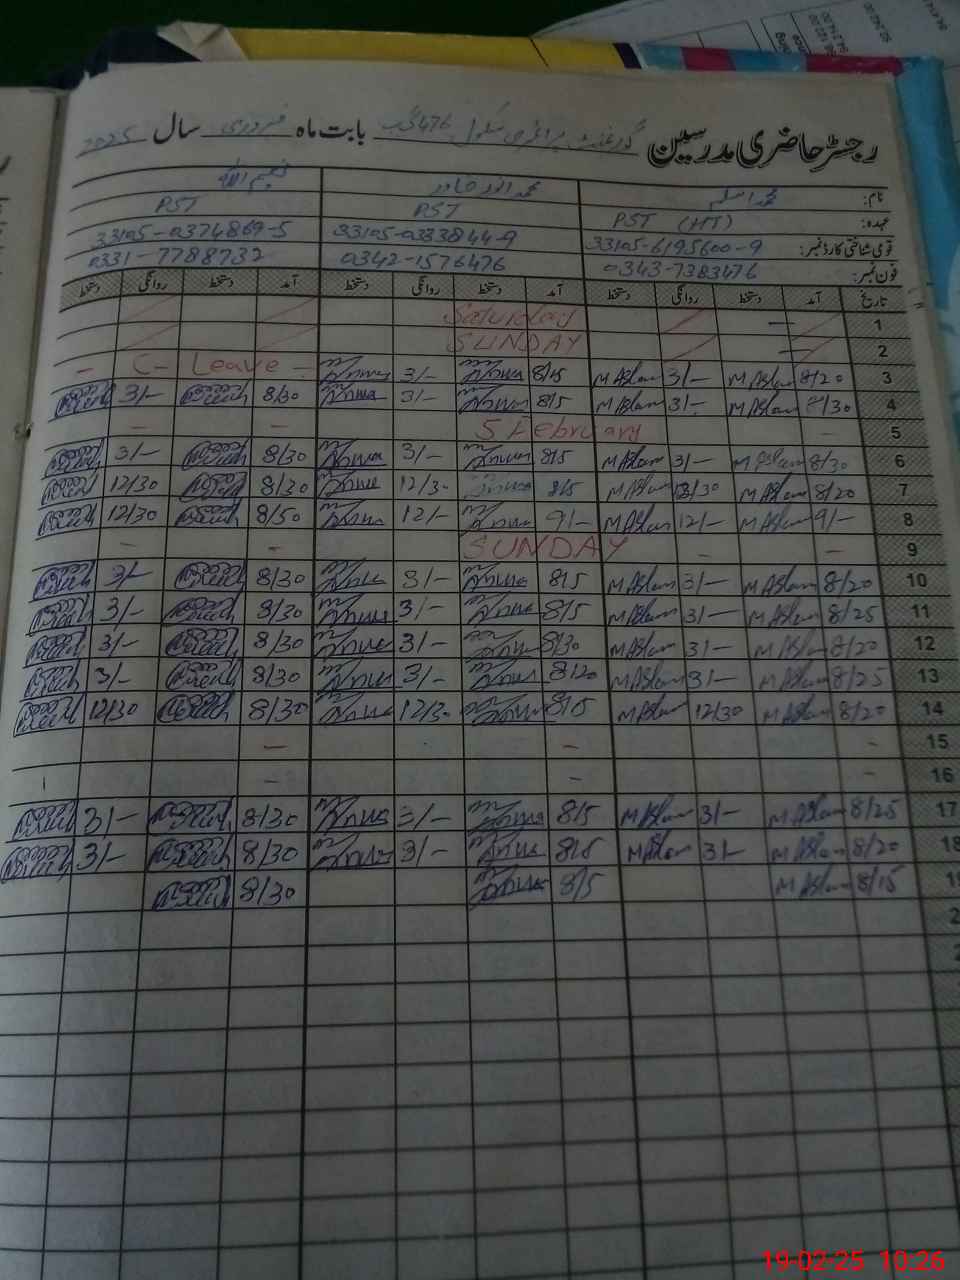 رجسٹر حاضری مدرسین گورنمنٹ پرائمری سکول 476 گ ب بابت ماہ فروری سال 2025
نام: محمد اسلم محمد انور خاور نعیم اللہ
عہدہ: PST (HT) PST PST
قومی شناختی کارڈ نمبر: 33105-6195600-9 33105-0333844-9 33105-0374869-5
فون نمبر: 0343-7383476 0342-1576476 0331-7788732
تاریخ آمد دستخط روانگی دستخط آمد دستخط روانگی دستخط آمد دستخط روانگی دستخط
1 Saturday
2 SUNDAY
3 8/20 M Aslam 3/- M Aslam 8/15 3/- - C- Leave -
4 8/30 M Aslam 3/- M Aslam 8/5 3/- 8/30 3/-
5 - 5 February - -
6 8/30 M Aslam 3/- M Aslam 8/5 3/- 8/30 3/-
7 8/20 M Aslam 12/30 M Aslam 8/5 12/30 8/30 12/30
8 9/- M Aslam 12/- M Aslam 9/- 12/- 8/50 12/30
9 - - SUNDAY - -
10 8/20 M Aslam 3/- M Aslam 8/5 3/- 8/30 3/-
11 8/25 M Aslam 3/- M Aslam 8/5 3/- 8/30 3/-
12 8/20 M Aslam 3/- M Aslam 8/30 3/- 8/30 3/-
13 8/25 M Aslam 3/- M Aslam 8/20 3/- 8/30 3/-
14 8/20 M Aslam 12/30 M Aslam 8/5 12/30 8/30 12/30
15 - - -
16 - - -
17 8/25 M Aslam 3/- M Aslam 8/5 3/- 8/30 3/-
18 8/20 M Aslam 3/- M Aslam 8/5 3/- 8/30 3/-
19 8/15 M Aslam 8/5 8/30
19-02-25 10:26